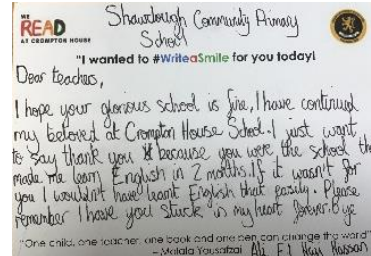 WE
READ
AT CROMPTON HOUSE
Shawclough Community Primary
School
"I wanted to #WriteaSmile for you today!
Dear teachers,
I hope your glorious school is fine, I have continued
my beloved at Crompton House School. I just want
to say thank you because you were the school tha
made me learn English in 2 months. If it wasn't for
you I wouldn't have learnt English that easily. Please
remember I have you stuck in my heart forever. Bye
"One child, one teacher, one book and one pen can change the world"
– Malala Yousafzai
Ali El Haj Hassan